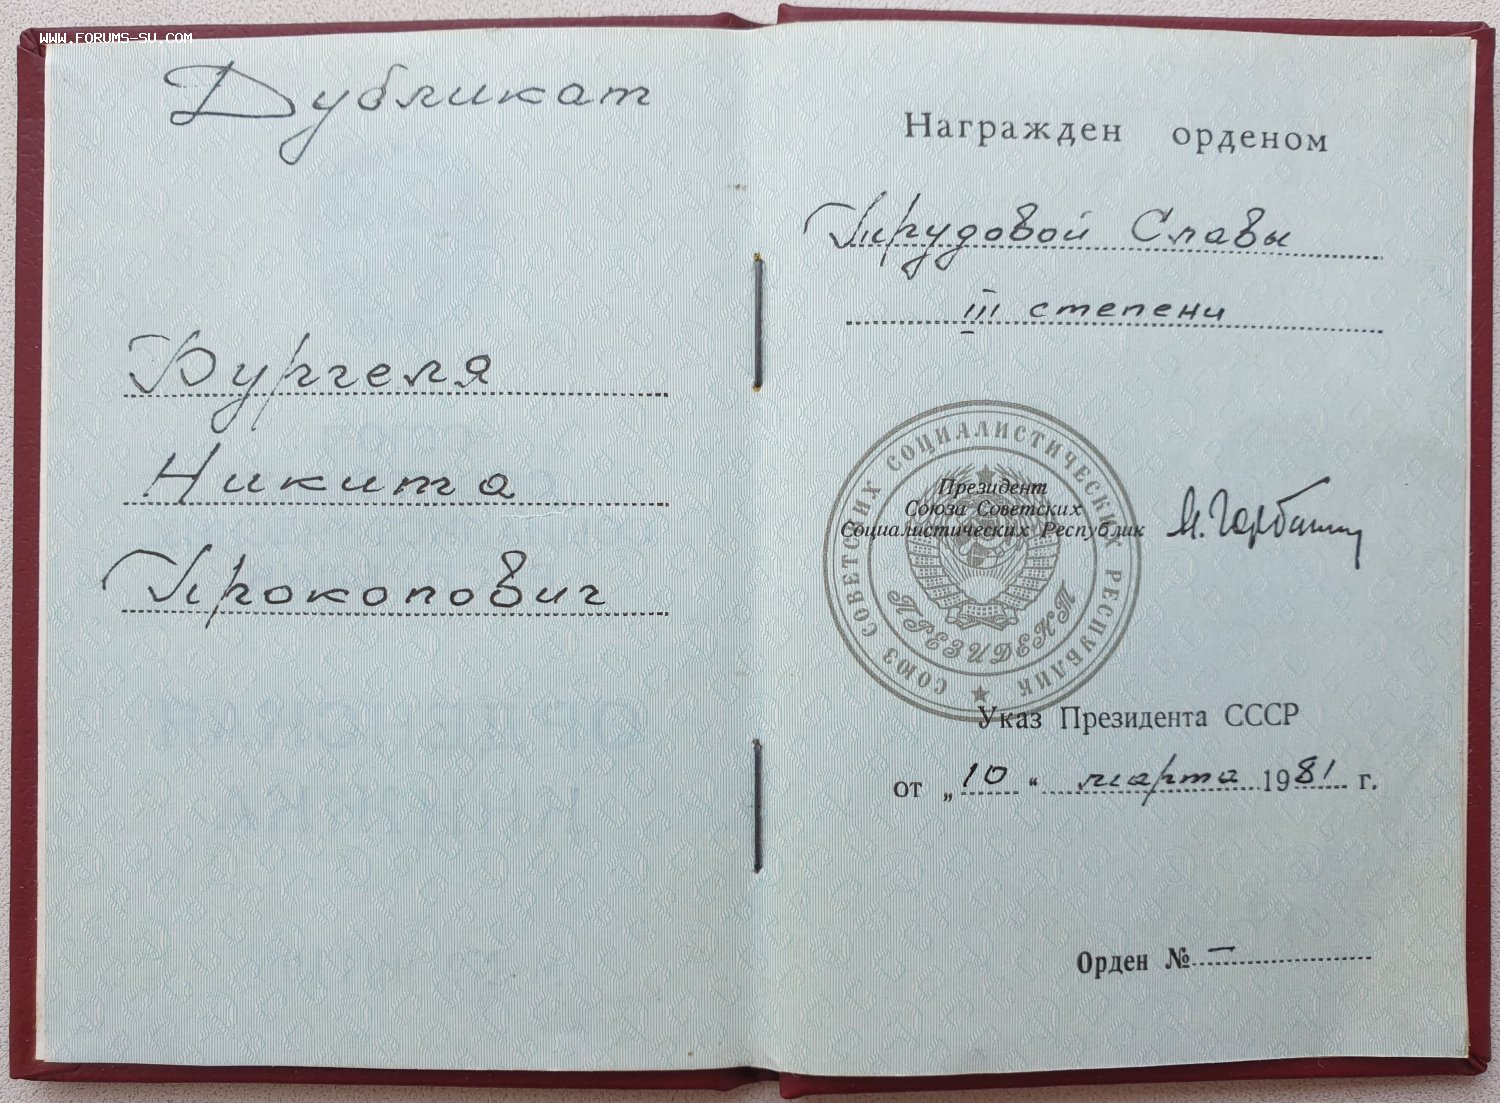 WWW.FORUMS-SU.COM
Дубликат
Бургеля
Никита
Прокопович
Награжден орденом
Трудовой Славы
III степени
СОЮЗ СОВЕТСКИХ СОЦИАЛИСТИЧЕСКИХ РЕСПУБЛИК
ПРЕЗИДЕНТ
Президент
Союза Советских
Социалистических Республик М. Горбачев
Указ Президента СССР
от „10“ марта 1981 г.
Орден № —